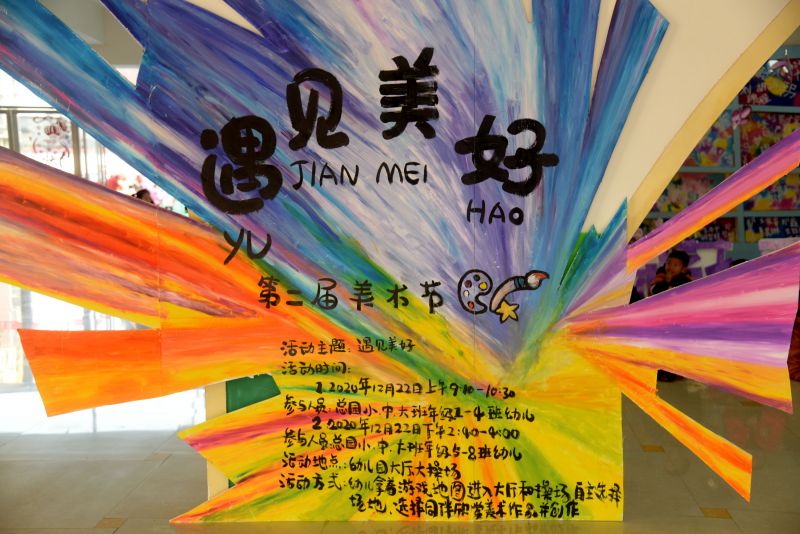 遇见美好
YU JIAN MEI HAO
第二届美术节
活动主题:遇见美好
活动时间:
1.2020年12月22日上午9:10-10:30
参与人员:总园小.中.大班年级1-4班幼儿
2.2020年12月22日下午2:40-4:00
参与人员总园小.中.大班年级5-8班幼儿
活动地点:幼儿园大厅大操场
活动方式:幼儿拿着游戏地图进入大厅和操场,自主选择
场地、选择同伴欣赏美术作品,并创作